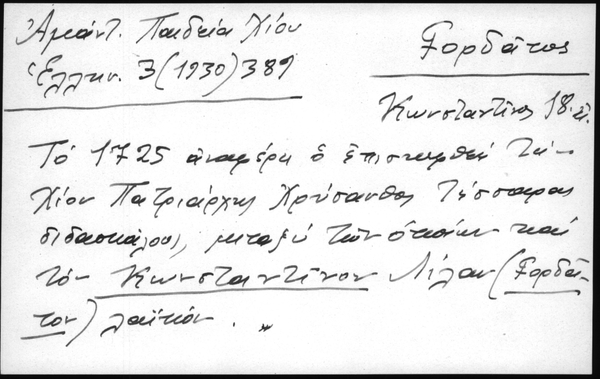 Ἀμάντ. Παιδεία Χίου
Ἑλλην. 3 (1930) 389
Γορδᾶτος
Κωνσταντῖνος 18. αἰ.
Τό 1725 ἀναφέρει ὁ ἐπισκεφθείς τήν
Χίον Πατριάρχης Χρύσανθος τέσσαρας
διδασκάλους, μεταξύ τῶν ὁποίων καί
τόν Κωνσταντῖνον Λίλαν (Γορδᾶ-
τον) λαϊκόν.